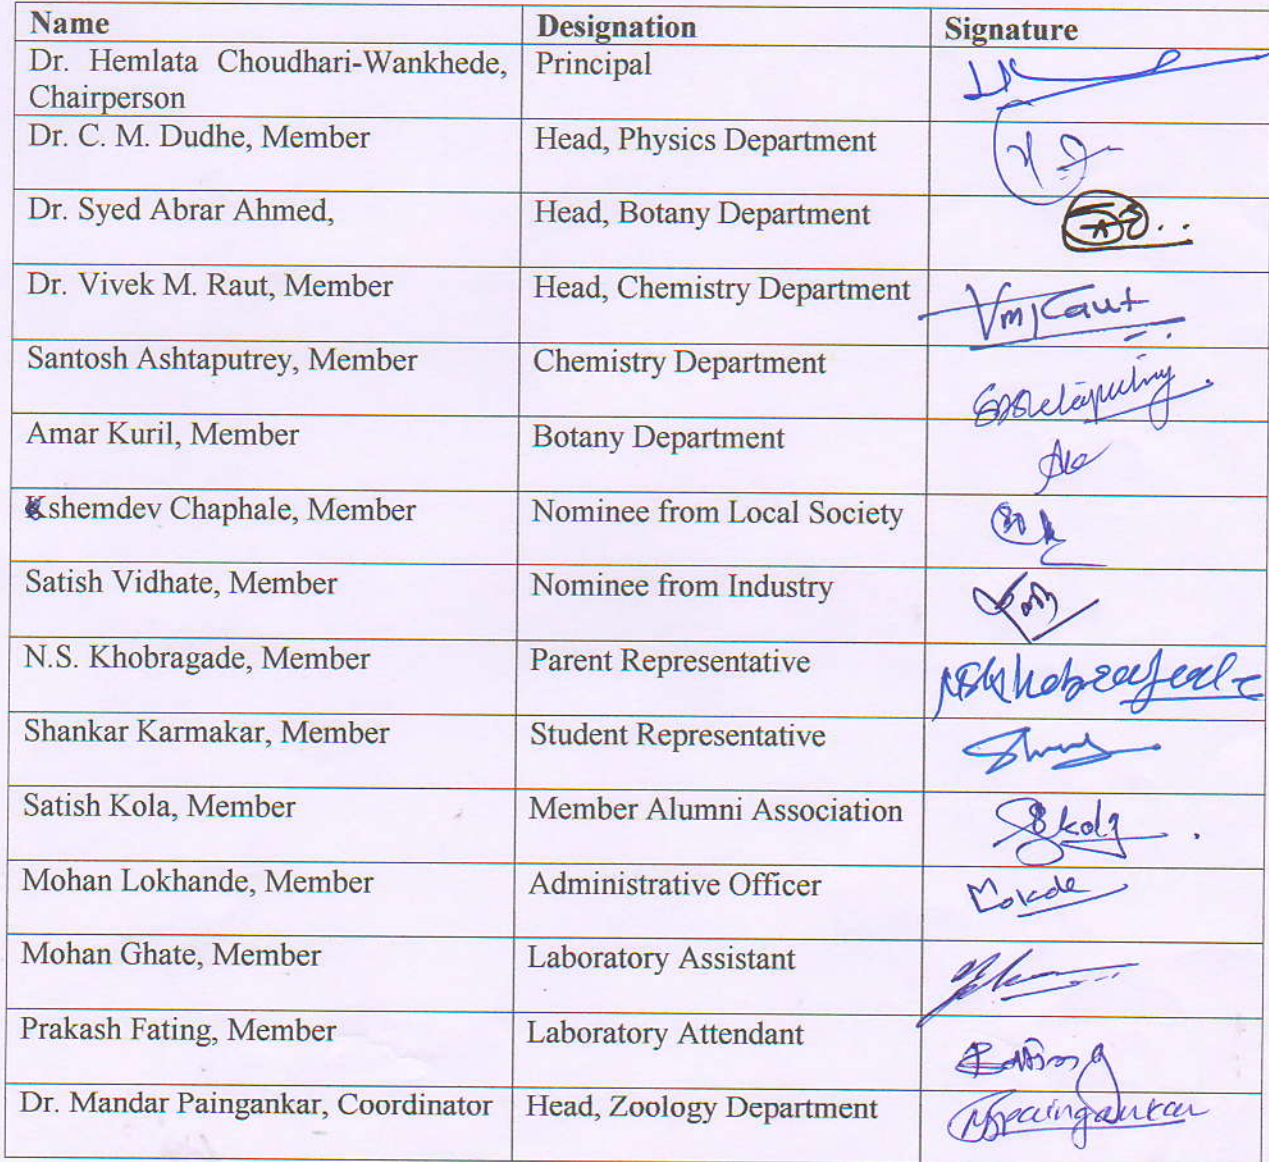 Name Designation Signature
Dr. Hemlata Choudhari-Wankhede, Principal
Chairperson
Dr. C. M. Dudhe, Member Head, Physics Department
Dr. Syed Abrar Ahmed, Head, Botany Department
Dr. Vivek M. Raut, Member Head, Chemistry Department VmRaut
Santosh Ashtaputrey, Member Chemistry Department
Amar Kuril, Member Botany Department
Kshemdev Chaphale, Member Nominee from Local Society
Satish Vidhate, Member Nominee from Industry
N.S. Khobragade, Member Parent Representative NSKhobragade
Shankar Karmakar, Member Student Representative
Satish Kola, Member Member Alumni Association
Mohan Lokhande, Member Administrative Officer
Mohan Ghate, Member Laboratory Assistant
Prakash Fating, Member Laboratory Attendant
Dr. Mandar Paingankar, Coordinator Head, Zoology Department Mpaingankar